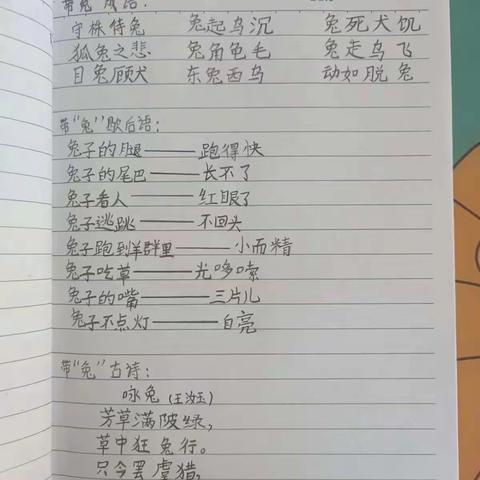 带"兔"成语:
守株待兔 兔起乌沉 兔死犬饥
狐兔之悲 兔角龟毛 兔走乌飞
目兔顾犬 东兔西乌 动如脱兔
带"兔"歇后语:
兔子的腿——跑得快
兔子的尾巴——长不了
兔子看人——红眼了
兔子逃跳——不回头
兔子跑到羊群里——小而精
兔子吃草——光哆嗦
兔子的嘴——三片儿
兔子不点灯——自亮
带"兔"古诗:
咏兔(王汝玉)
芳草满陂绿,
草中狂兔行。
只今罢虞猎,